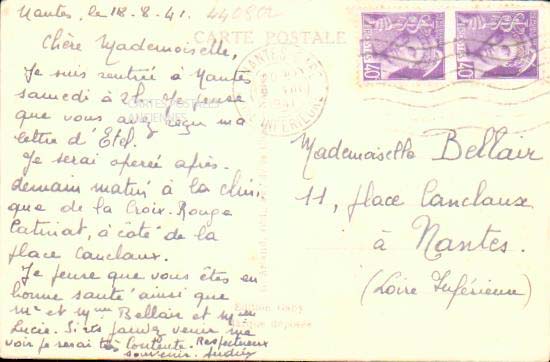 Nantes, le 18-8-41.
440802
CARTE POSTALE
Chère Mademoiselle,
Je suis rentrée à Nantes
samedi à 2h. Je pense
que vous avez reçu ma
lettre d'Etel.
Je serai opérée après-
demain matin à la clini
que de la Croix-Rouge
Catinat, à côté de la
place Canclaux.
Je pense que vous êtes en
bonne santé ainsi que
Mr et Mme Bellair et Mlle
Lucie. Si vs venir me
voir je serai très contente. Respectueux
souvenir.
CARTES POSTALES
ANCIENNES
NANTES
INFERIEURE
40
40
Mademoiselle Bellair
11, place Canclaux
à Nantes.
(Loire Inférieure)
Edition Gaby
Marque déposée